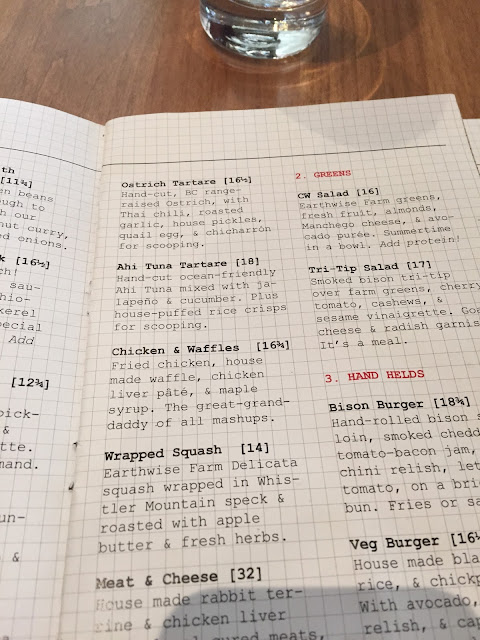 th
[11¾]
en beans
ough to
h our
nut curry,
ed onions.
k [16½]
ch!
sau-
hio-
kerel
pecial
Add
[12¾]
pick-
&
tte.
mand.
un-
&
Ostrich Tartare [16½]
Hand-cut, BC range-
raised Ostrich, with
Thai chili, roasted
garlic, house pickles,
quail egg, & chicharrón
for scooping.
Ahi Tuna Tartare [18]
Hand-cut ocean-friendly
Ahi Tuna mixed with ja-
lapeño & cucumber. Plus
house-puffed rice crisps
for scooping.
Chicken & Waffles [16¾]
Fried chicken, house
made waffle, chicken
liver pâté, & maple
syrup. The great-grand-
daddy of all mashups.
Wrapped Squash [14]
Earthwise Farm Delicata
squash wrapped in Whis-
tler Mountain speck &
roasted with apple
butter & fresh herbs.
Meat & Cheese [32]
House made rabbit ter-
rine & chicken liver
cured meats,
2. GREENS
CW Salad [16]
Earthwise Farm greens,
fresh fruit, almonds,
Manchego cheese, & avo-
cado purée. Summertime
in a bowl. Add protein!
Tri-Tip Salad [17]
Smoked bison tri-tip
over farm greens, cherry
tomato, cashews, &
sesame vinaigrette. Goa
cheese & radish garnis
It's a meal.
3. HAND HELDS
Bison Burger [18¾]
Hand-rolled bison s
loin, smoked chedd
tomato-bacon jam,
chini relish, let
tomato, on a bri
bun. Fries or sa
Veg Burger [16½
House made bla
rice, & chickp
With avocado,
relish, & cap